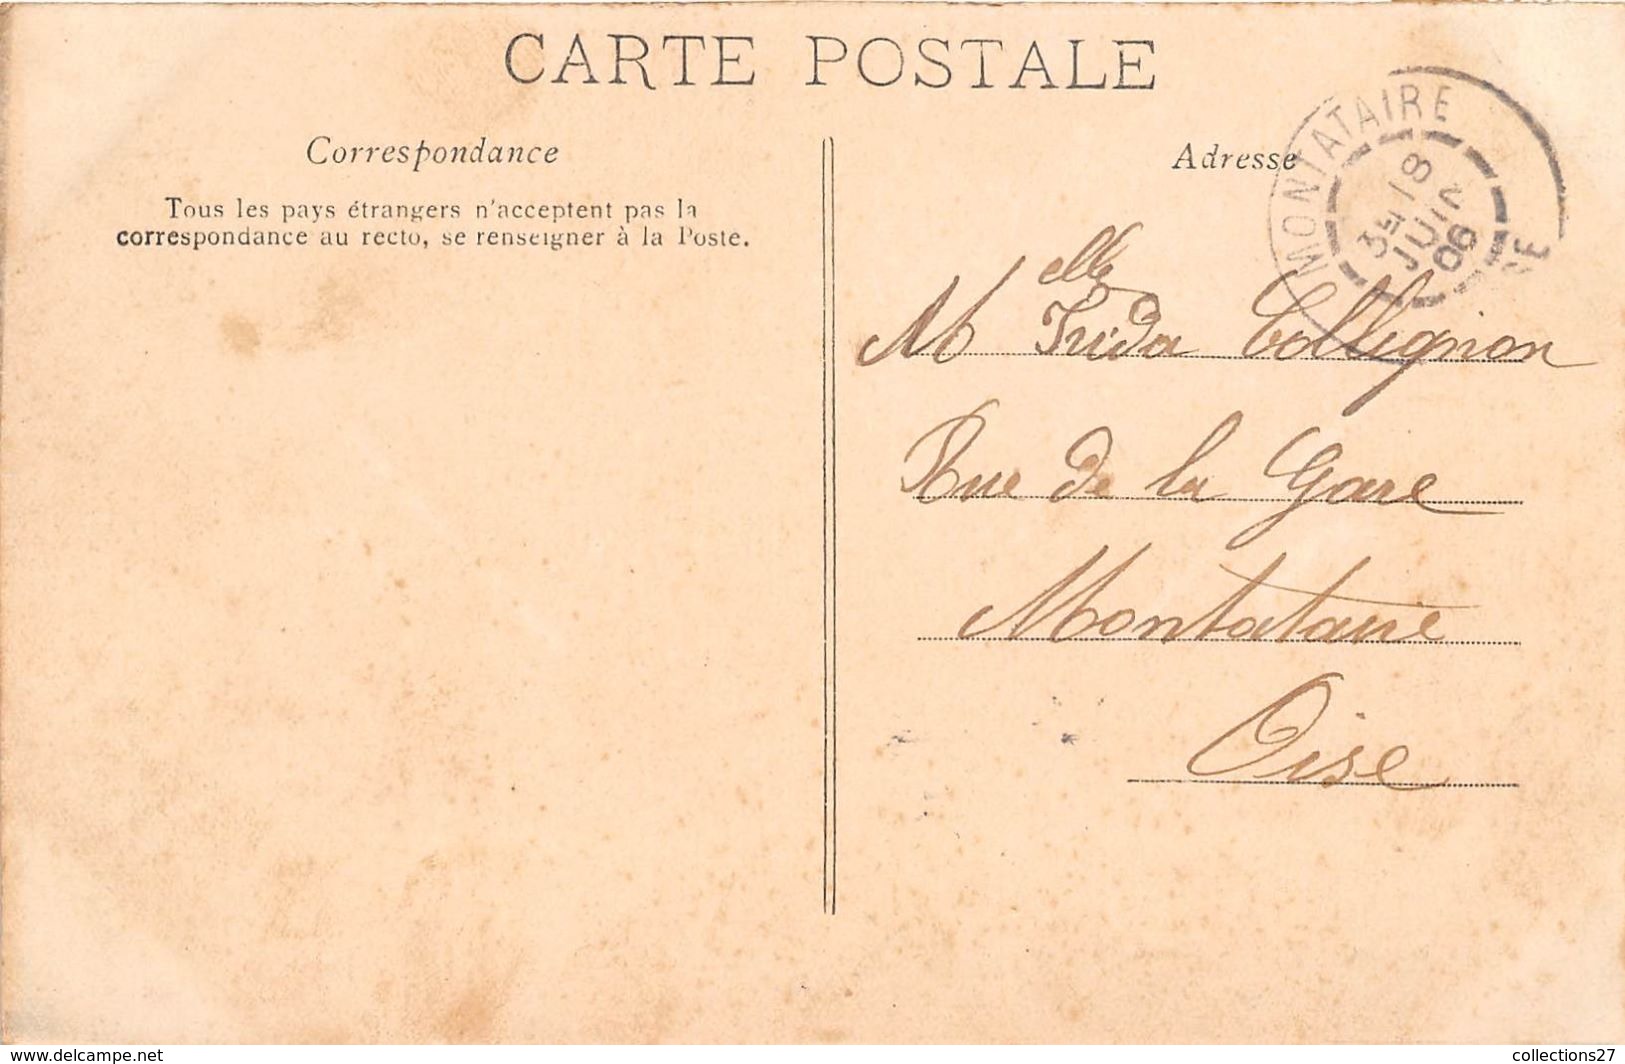 CARTE POSTALE
Correspondance
Tous les pays étrangers n'acceptent pas la
correspondance au recto, se renseigner à la Poste.
Adresse
MONTATAIRE
18
JUIN
06
Melle Frida Collignon
Rue de la Gare
Montataire
Oise
www.delcampe.net
collections27